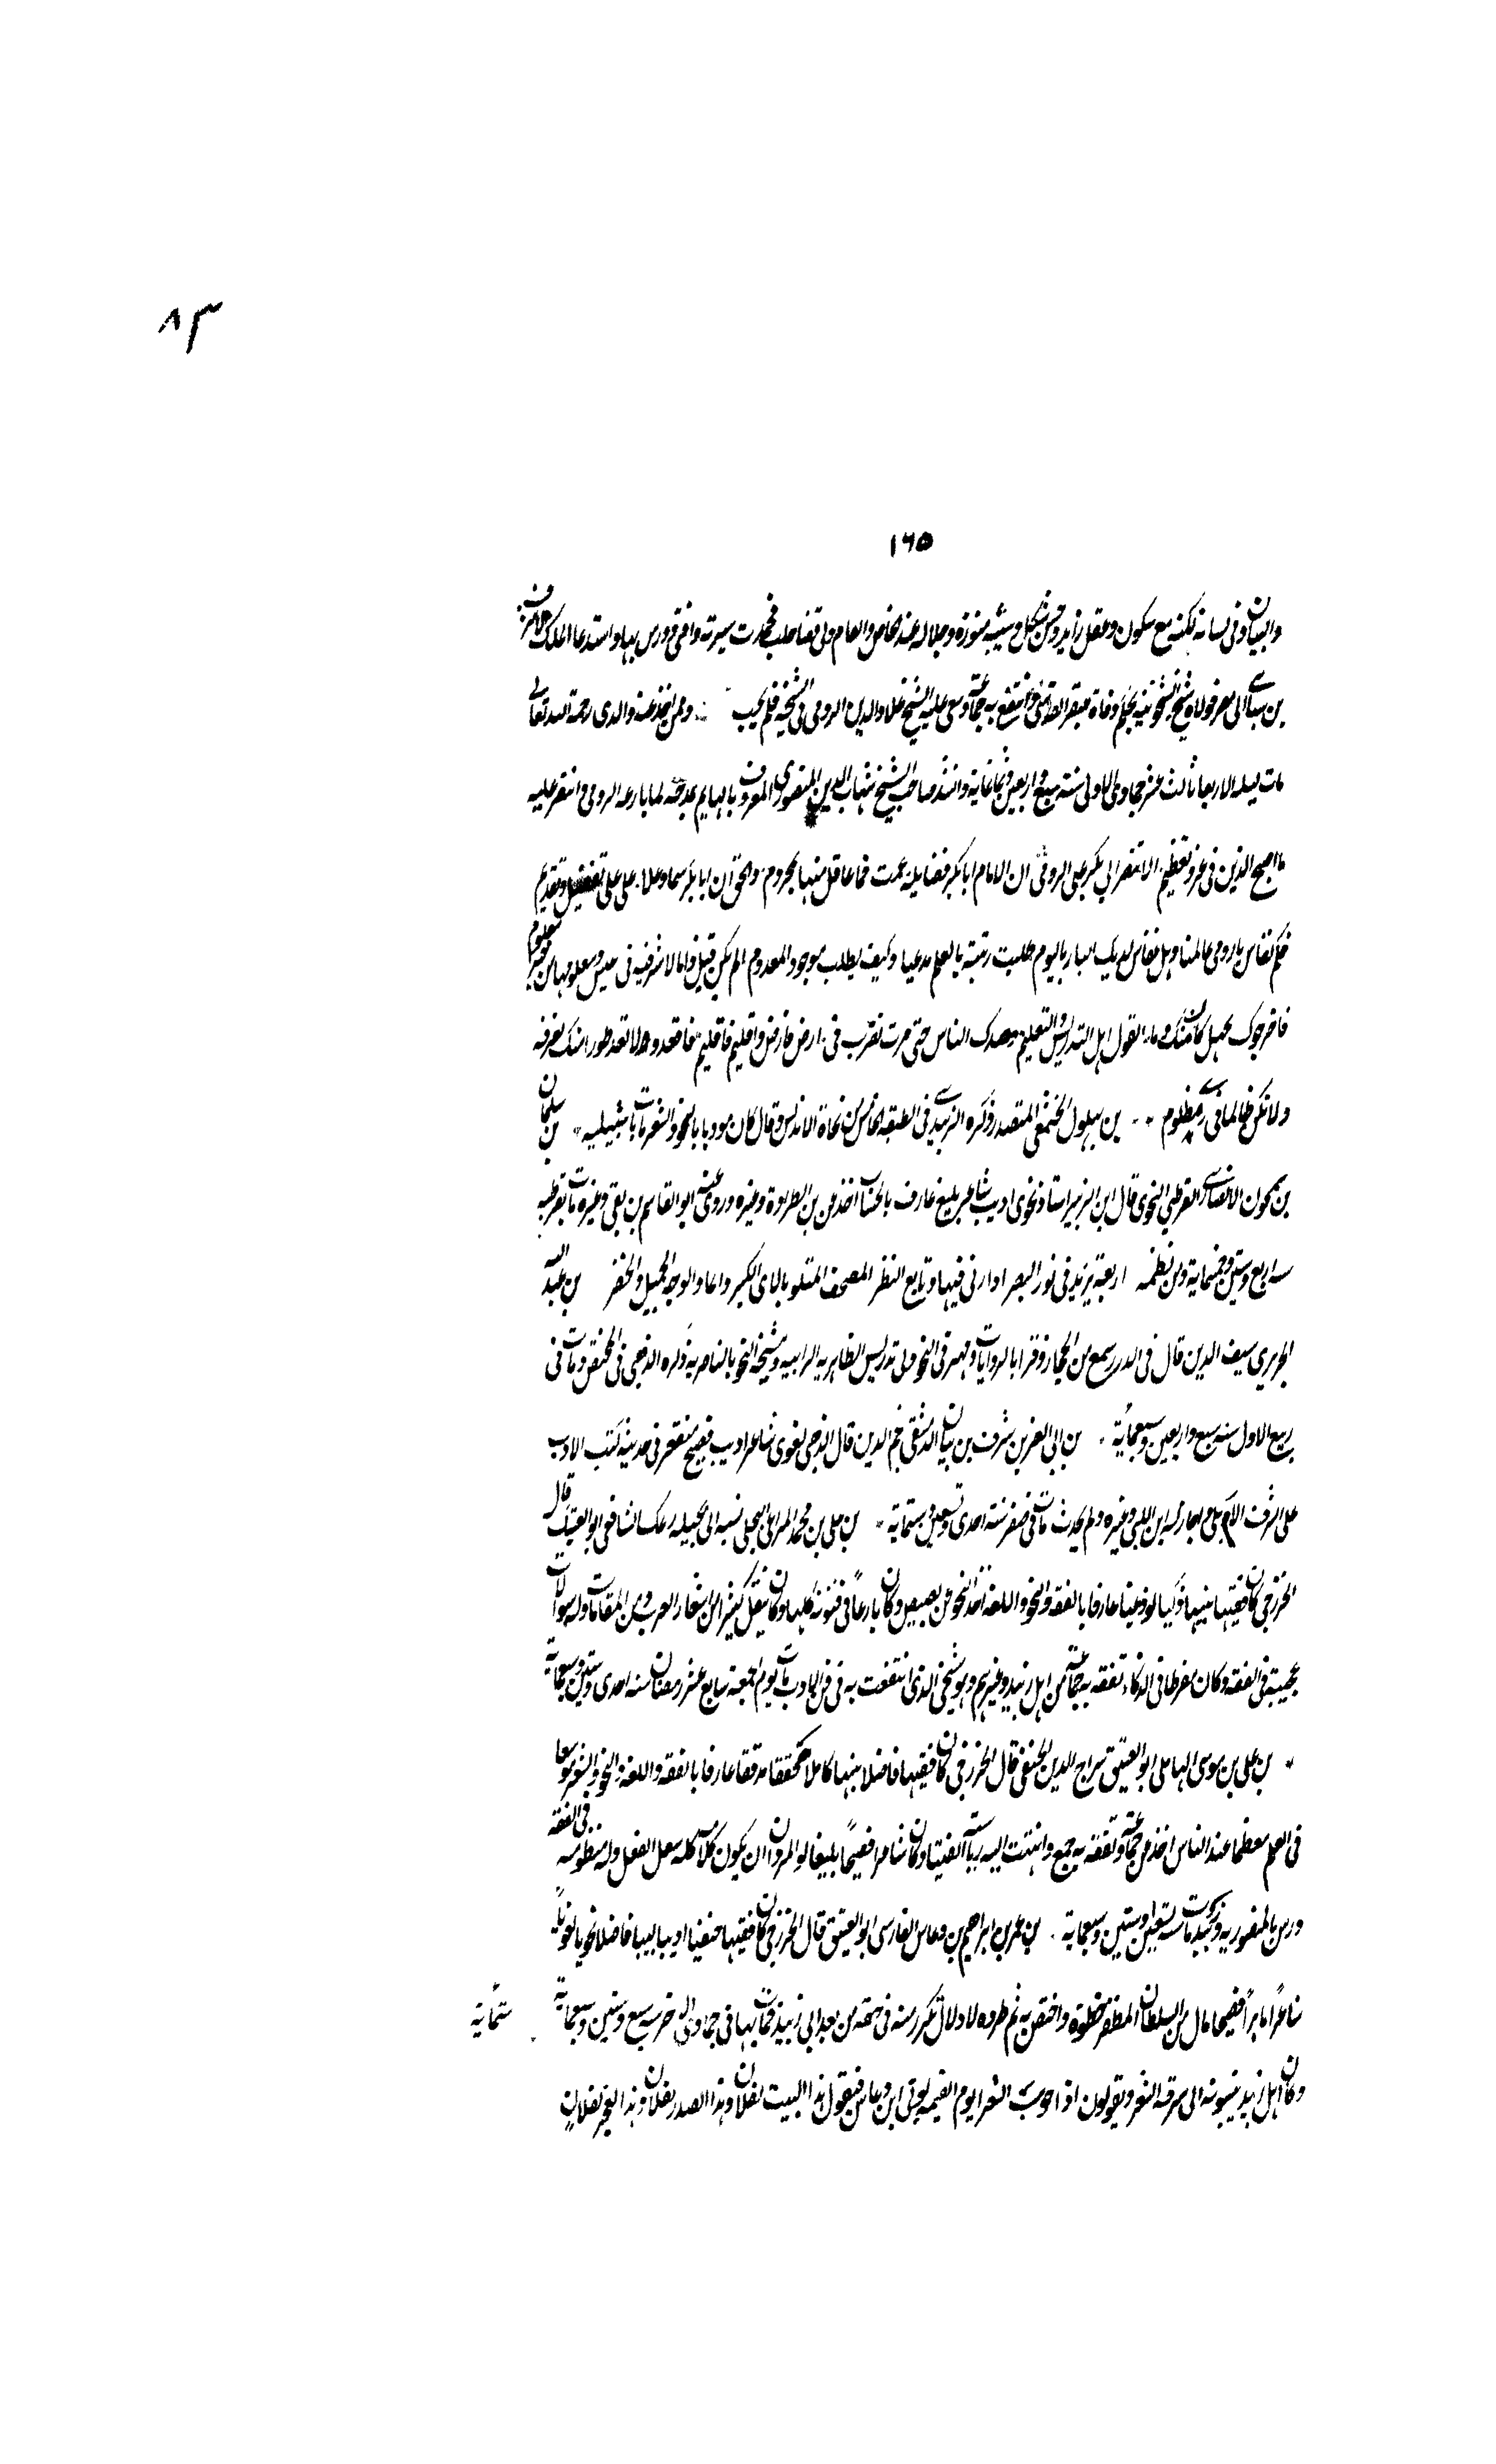 ٨٣
١٦٥
والبيان وفي لسانه لكنة مع سكون وعقل زايد وحسن شكل وشيبة منورة وجلالة عند الخاص والعام ولي قضا حلب فحمدت سيرته وافتى ودرس بها واستدعا الملك الاشرف
بن سباي الى مصر فولاه مشيخة الشيخونية بحكم وفاة وانتفع به جماعة وسعى عليه الشيخ علاء والدين الرومي في المشيخة فلم يجب وممن اخذ عنه والدي رحمة الله تعالى
مات ليلة الاربعا ثالث عشر جمادى الاولى سنة سبع واربعين وثمانماية وانشد صاحب الشيخ شهاب الدين المنصوري المعروف بالهايم يمدحه لما بارعه الرومي وانتصر عليه
ما اصبح الدين في عز وتعظيم الا بنصر ابي بكر على الرومي ان الامام ابا بكر فضايله عمت فما عاقل منها بمحروم والحق ان ابا بكر سما وعلا على علي بتفضيل وتقديم
فكم تقاس يا رومي عالمنا وهل تقاس لديك البار باليوم طلبت رتبته بالعلم مدعيا وكيف يطلب موجود المعدوم الم تكن قبل والاشرفية في معلومها من معلوم
فاخرجوك بجهل كان منك وما القول اهل التدريس والتعليم وصدك الناس حتى صرت تضرب في ارض فارض واقليم فاقليم فاقعد ولا تعد طورا منك تعرفه
ولا تكن ظالما في مظلوم بن بهلول الخثمعي المتصدر ذكره الزبيدي في الطبقة الخامس من نحاة الاندلس وقال كان مودبا بالنحو والشعر مات باشبيلية بن سليمان
بن سمحون الانصاري القرطبي النحوي قال ابن الزبير استاذ نحوي اديب شاعر بليغ عارف بالحساب اخذ عن بن الطراوة وغيره وروى عنه ابو القاسم بن بقي وغيره مات بقرطبة
سنة اربع وستين وخمسماية ومن نظمه اربعة تزيد في نور البصر اذا رنى فيها وتابع النظر المصحف المتلو بالاي الكبير والما والوجه الجميل والخضر بن عبد الله
الحريري سيف الدين قال في الدرر سمع من الحجار وقرا بالروايات ومهر في النحو ولي تدريس الظاهرية البرانية ومشيخة النحو بالناصرية ذكره الذهبي في المختص ومات في
ربيع الاول سنة سبع واربعين وسبعماية بن ابي العز بن مشرف بن بيان الدمشقي نجم الدين قال الذهبي لغوي شاعر اديب فصيح متقعر في حديثه كتب الادب
على الشرف الاربلي واجاز له ابن اللتي وغيره ولم يحدث مات في صفر سنة احدى وتسعين وستماية بن علي بن محمد البجلي نسبة الى بجيلة عك الشافعي ابو العتيق قال
الخزرجي كان فقيها نبيها ذكيا لوذعيا عارفا بالفقه والنحو واللغة اخذ النحو عن بصيبص وكان بارعاً في فنونه كلها وكان ينقل كثيرا من اشعار العرب ومن المقامات وله سوالات
عجيبة في الفقه وكان مفرطا في الذكاء تفقه به جماعة من اهل زبيد وغيرهم وهو شيخي الذي انتفعت به في فن الادب مات يوم الجمعة سابع عشر رمضان سنة احدى وستين وسبعماية
بن علي بن موسى الهاملي ابو العتيق سراج الدين الحنفي قال الخزرجي كان فقيها فاضلا نبيها كاملا محققا مدققا عارفا بالفقه واللغة والنحو والشعر متوسعا
في العلم معظما عند الناس اخذ عن جماعة وتفقه به جمع وانتهت اليه رياسة الفتيا وكان شاعرا فصيحاً بليغا لو اراد ان يكون كلامه كله شعر لفعل وله منظومة في الفقه
ودرس بالمنصورية وزبيد مات سنة تسع وستين وسبعماية بن عمر بن ابراهيم بن دعاس الفارسي ابو العتيق قال الخزرجي كان فقيها حنفيا اديبا لبيبا فاضلا نحويا لغوياً
شاعراً ماهراً فصيحا نال من السلطان المظفر حظوة واختص به ثم طرده لادلال تكرر منه في حقه من بعد الى زبيد فمات بها في جمادى الاخر سنة سبع وستين وسبعماية ستماية
وكان اهل زبيد ينسبونه الى سرقة الشعر ويقولون اذا حوسب الشعرا يوم القيمة يوتى بابن دعاس فيقول هذا البيت لفلان وهذا الصدر لفلان وهذا العجز لفلان